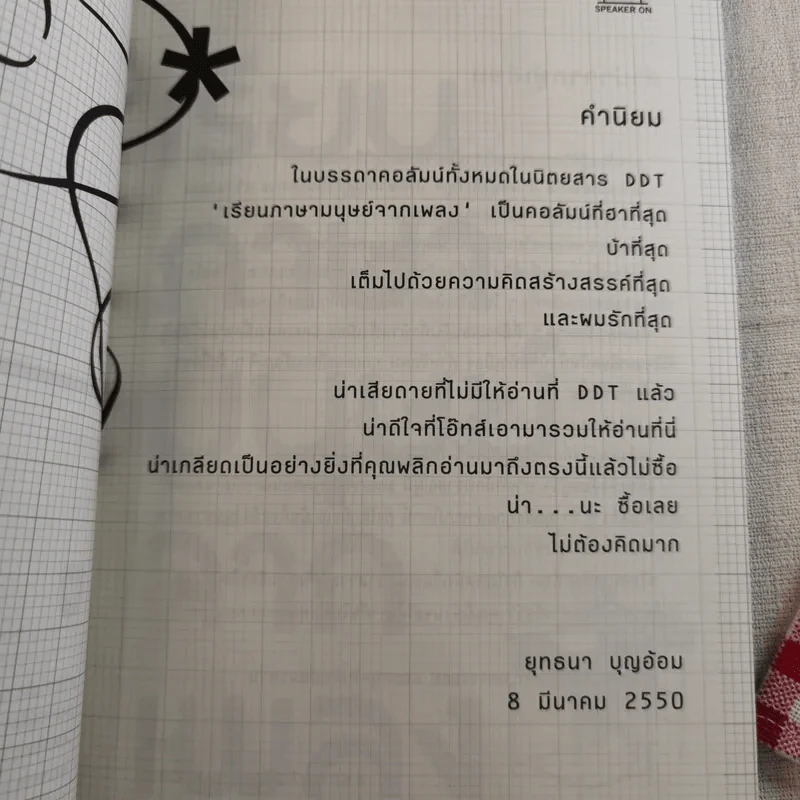 SPEAKER ON
คำนิยม
ในบรรดาคอลัมน์ทั้งหมดในนิตยสาร DDT
'เรียนภาษามนุษย์จากเพลง' เป็นคอลัมน์ที่ฮาที่สุด
บ้าที่สุด
เต็มไปด้วยความคิดสร้างสรรค์ที่สุด
และผมรักที่สุด
น่าเสียดายที่ไม่มีให้อ่านที่ DDT แล้ว
น่าดีใจที่โอ๊ทส์เอามารวมให้อ่านที่นี่
น่าเกลียดเป็นอย่างยิ่งที่คุณพลิกอ่านมาถึงตรงนี้แล้วไม่ซื้อ
น่า...นะ ซื้อเลย
ไม่ต้องคิดมาก
ยุทธนา บุญอ้อม
8 มีนาคม 2550